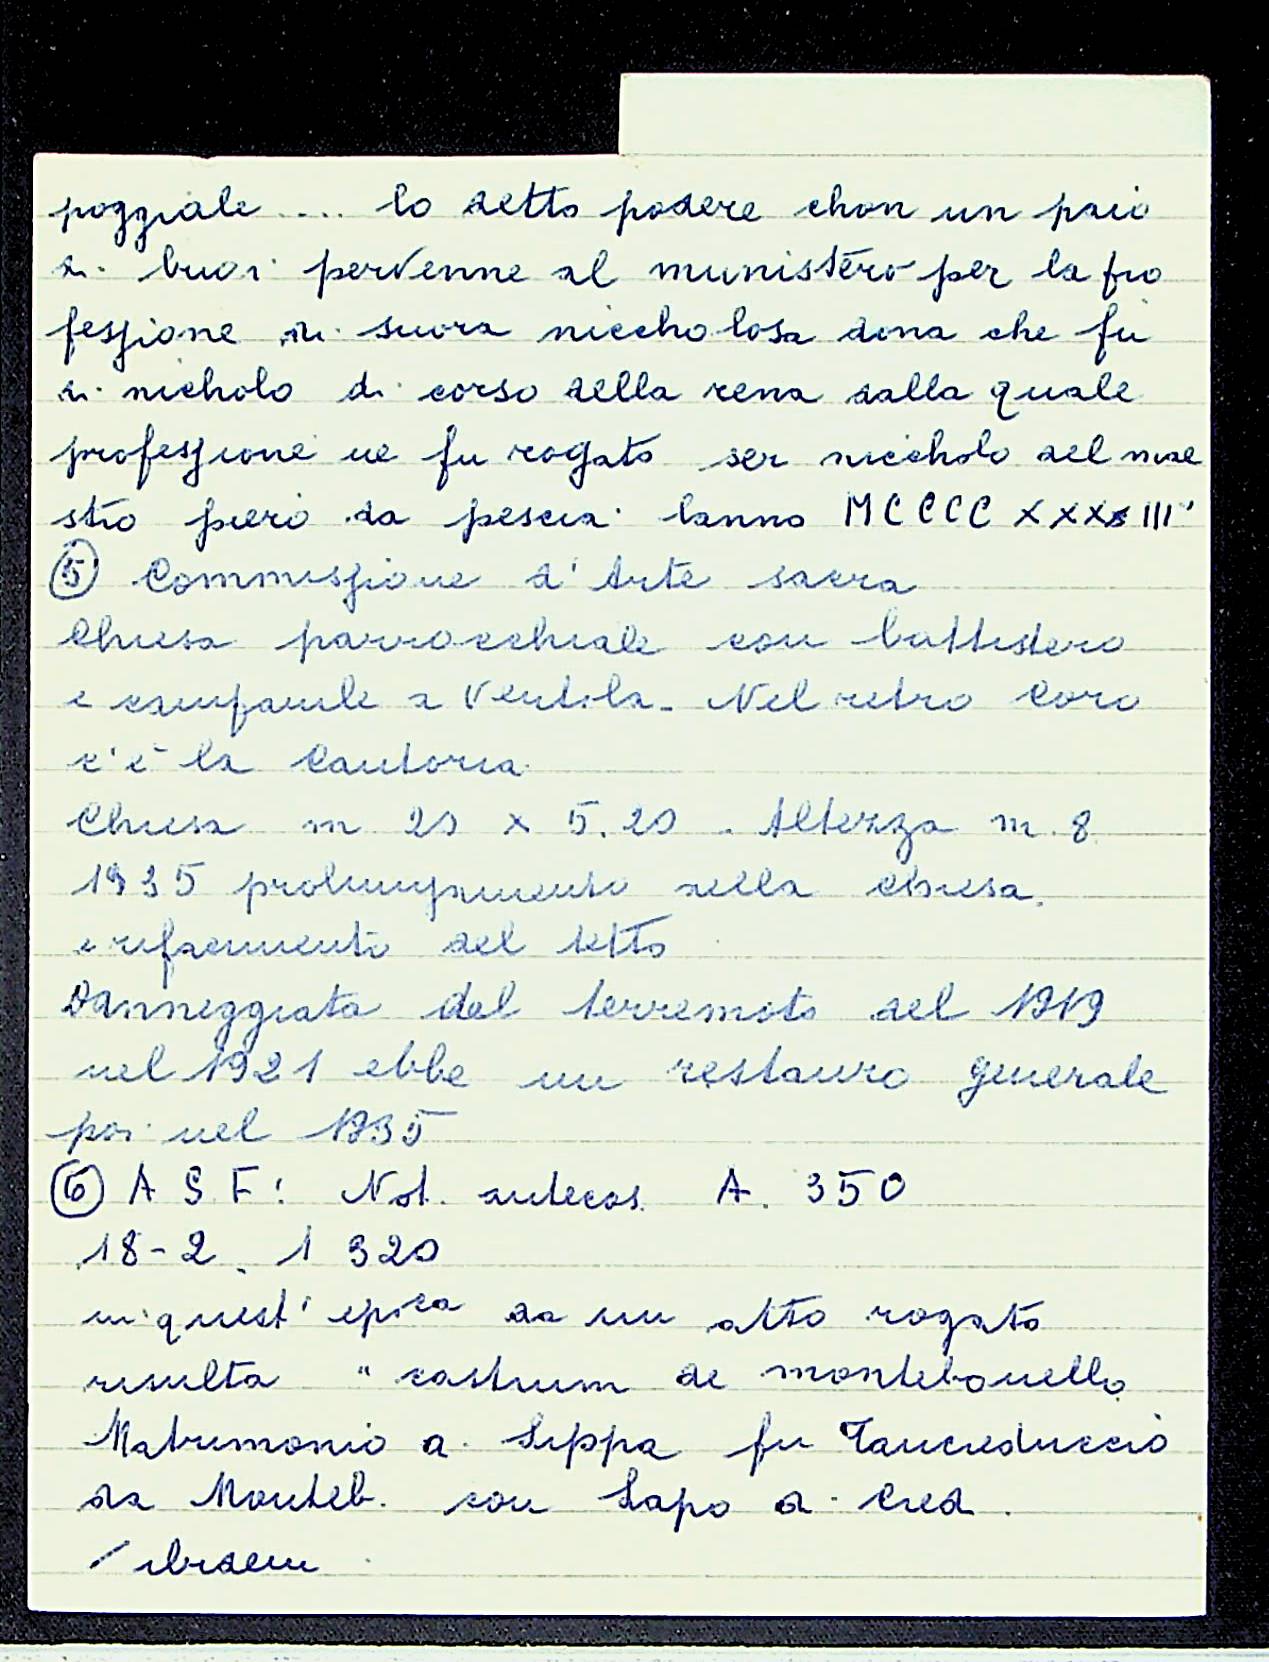 poggiale .... lo detto podere chon un paio
di buoi pervenne al munistero per la pro
fessione di suora niccholosa dona che fu
di nicholo di corso della rena dalla quale
professione ne fu rogato ser niccholo del mae
stro piero da pescia lanno MCCCCXXXIII
5 Commissione d'Arte sacra
Chiesa parrocchiale con battistero
e campanile a Ventola. Nel retro Coro
c'è la Cantoria
Chiesa m 20 x 5.20. Altezza m. 8
1935 prolungamento della chiesa.
e rifacimento del tetto
Danneggiata dal terremoto del 1919
nel 1921 ebbe un restauro generale
poi nel 1935
6 A S F: Not. antecos. A. 350
18-2. 1320
in quest' epoca da un atto rogato
risulta " castrum de montebonello
Matrimonio di Lippa fu Tancreduccio
da Monteb. con Lapo di
/ ibidem